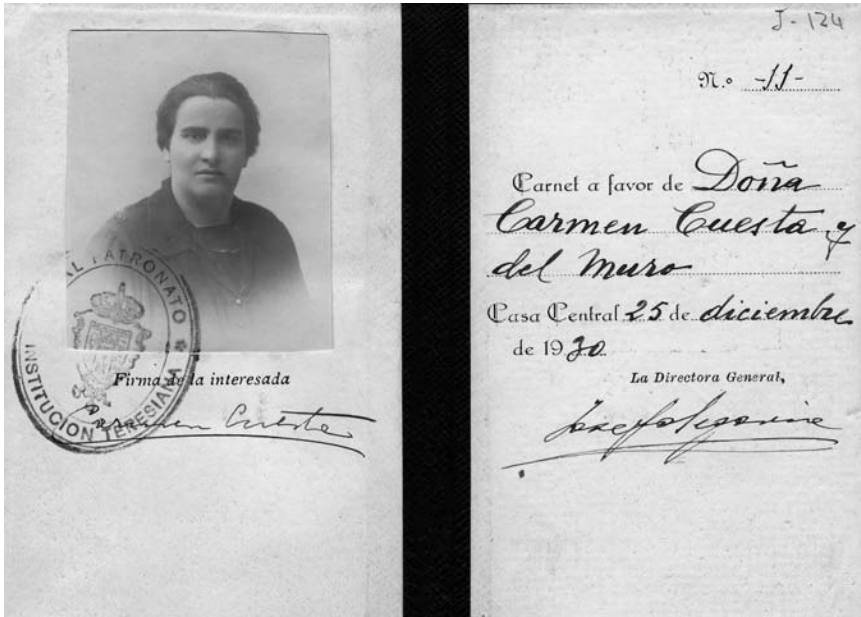 REAL PATRONATO
INSTITUCION TERESIANA
Firma de la interesada
Carmen Cuesta
J-124
N.º -11-
Carnet a favor de Doña
Carmen Cuesta y
del Muro
Casa Central 25 de diciembre
de 1930
La Directora General,
Josefa Segovia